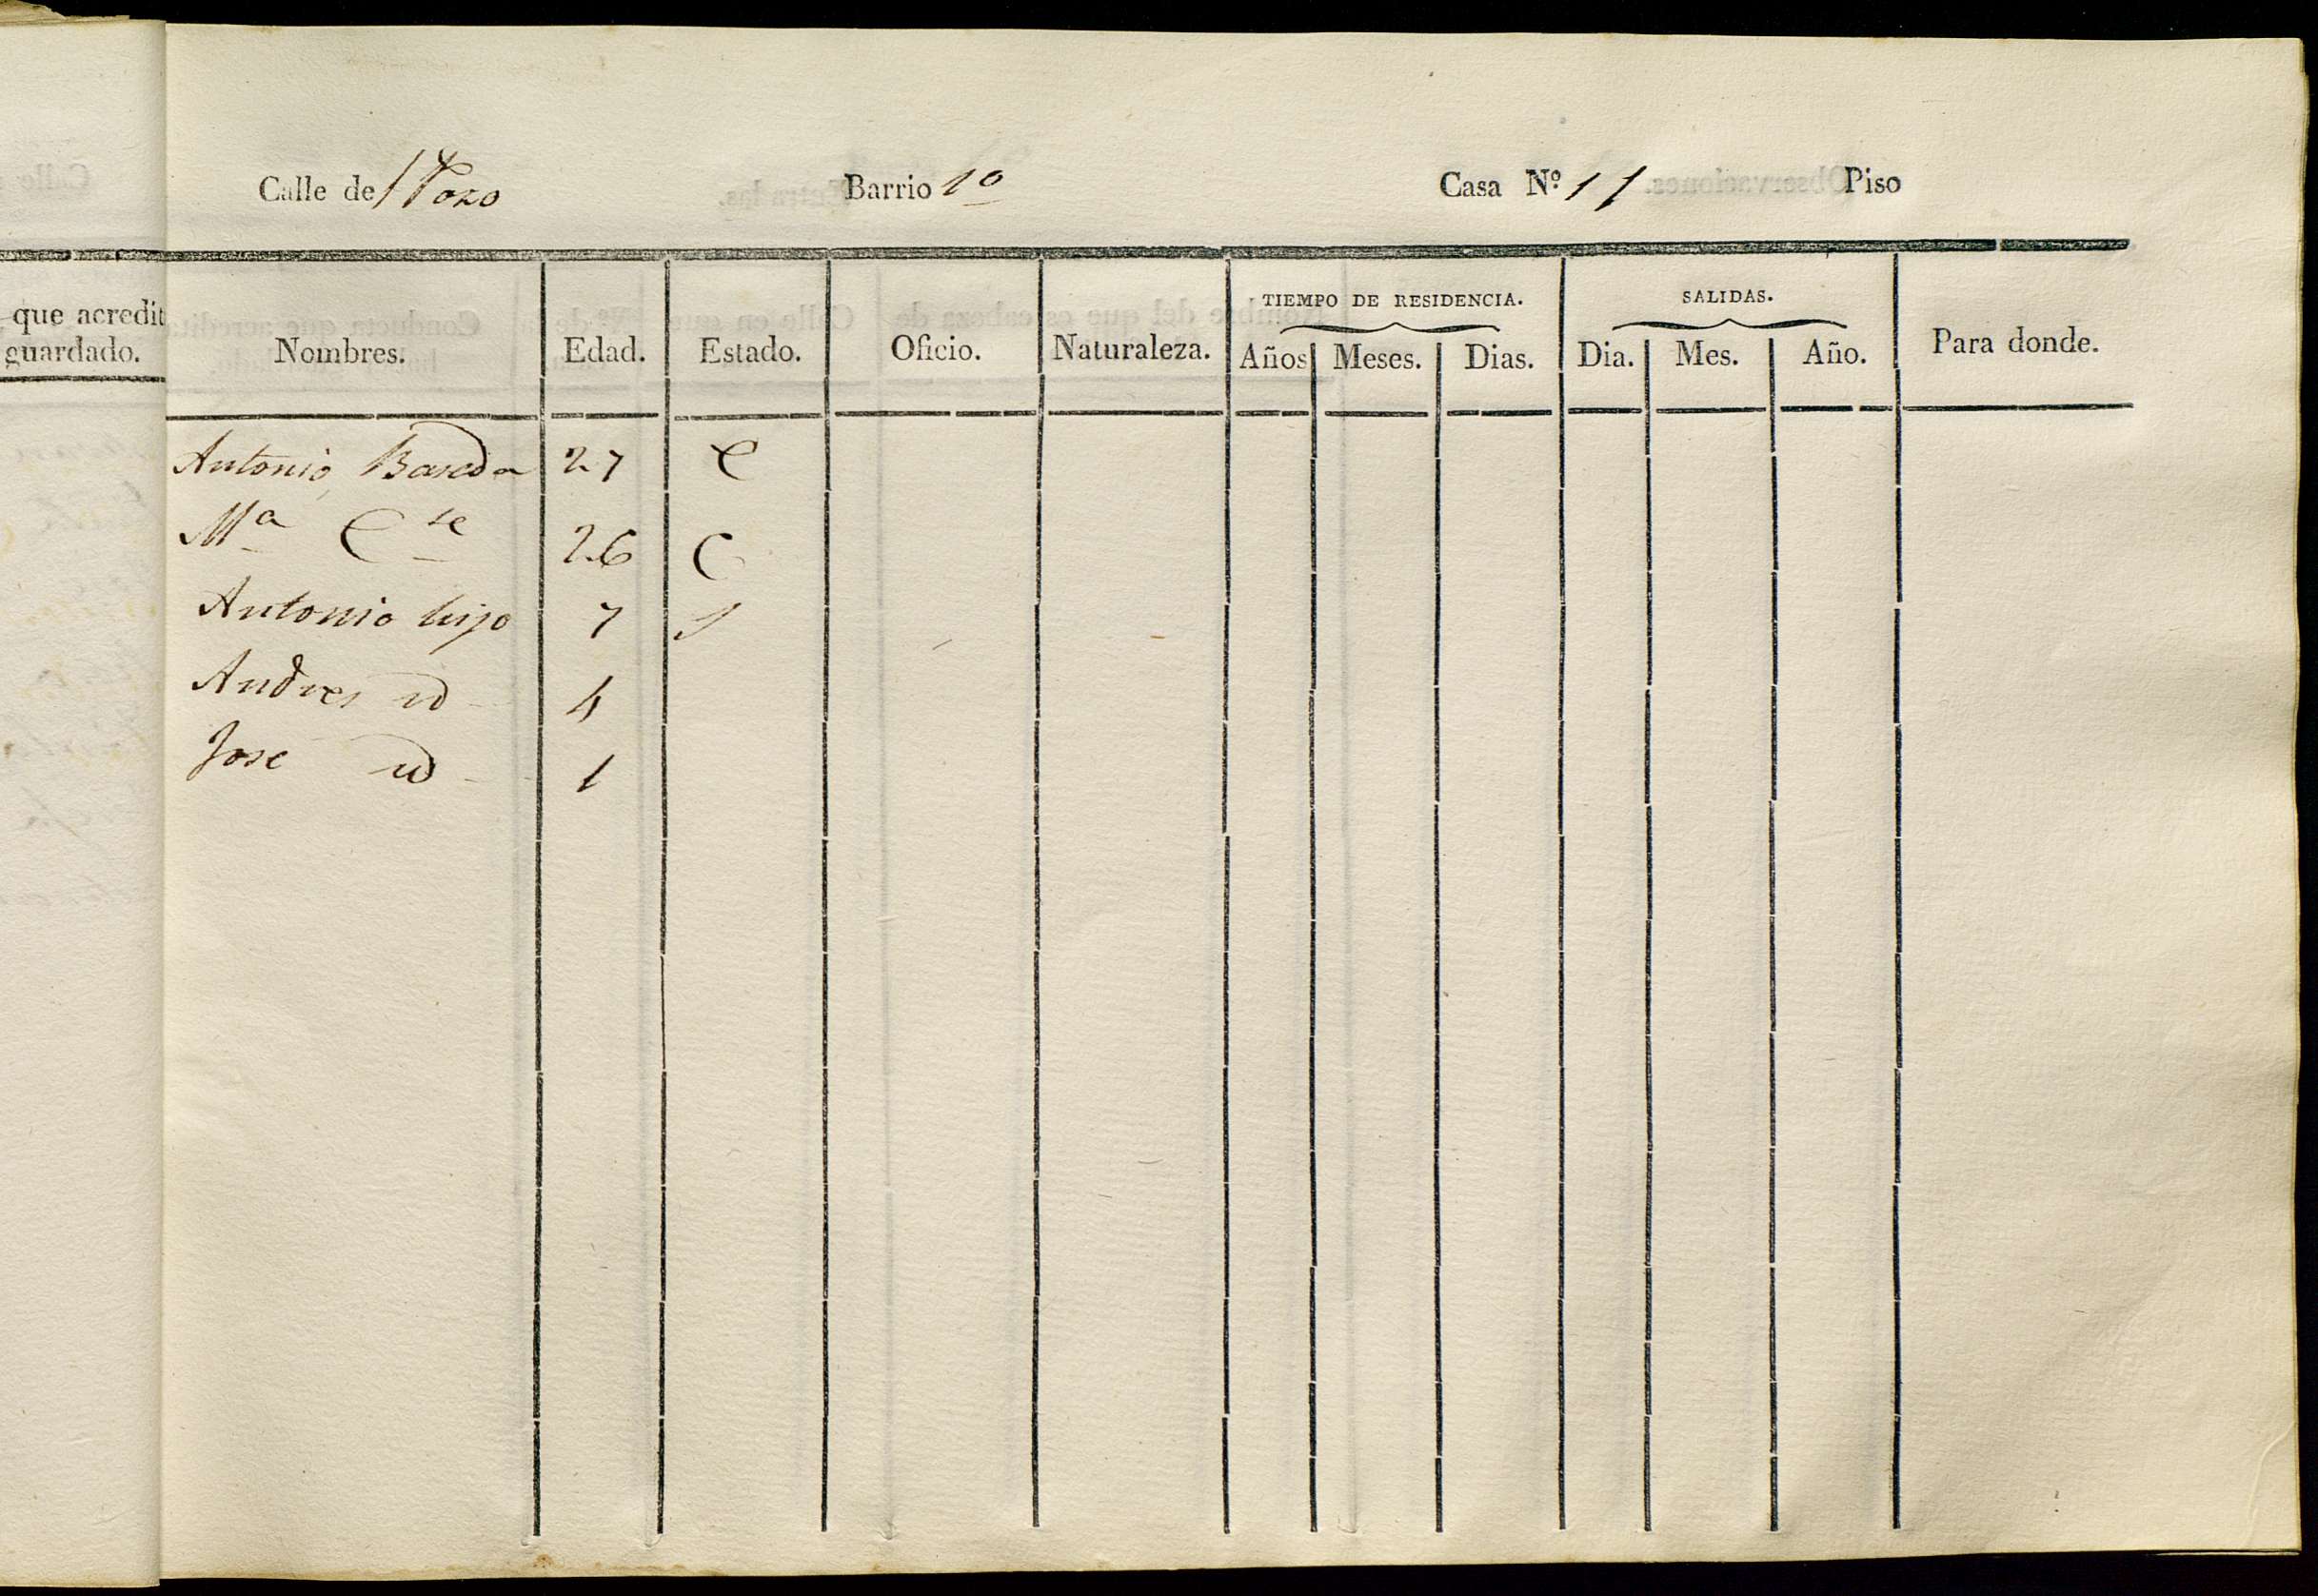 Calle del Pozo Barrio 1º Casa Nº 11 Piso
que acredit
guardado.
Nombres. Edad. Estado. Oficio. Naturaleza. TIEMPO DE RESIDENCIA. Años Meses. Dias. SALIDAS. Dia. Mes. Año. Para donde.
Antonio 27 C
Mª C te 26 C
Antonio hijo 7 S
Andres id 4
Jose id 1